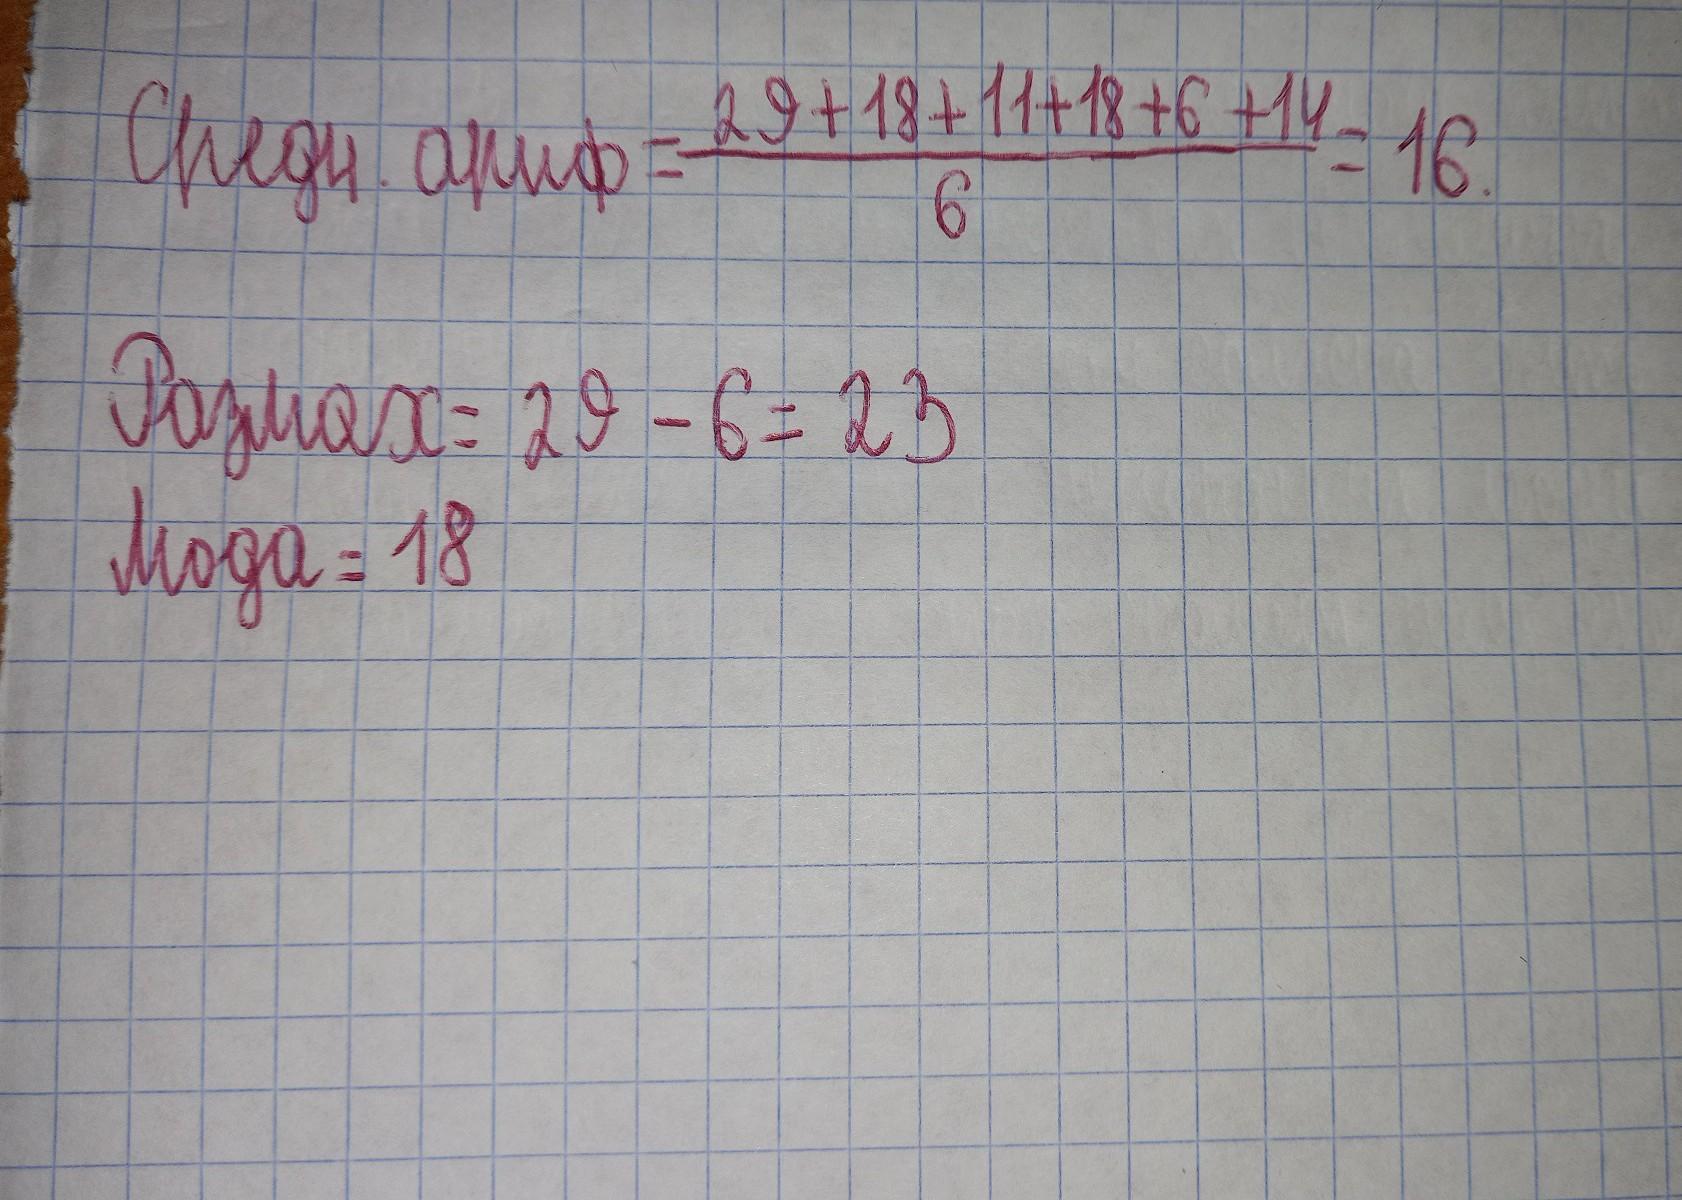 Средн. ариф = 29+18+11+18+6+14 / 6 = 16.
Размах = 29 - 6 = 23
Мода = 18